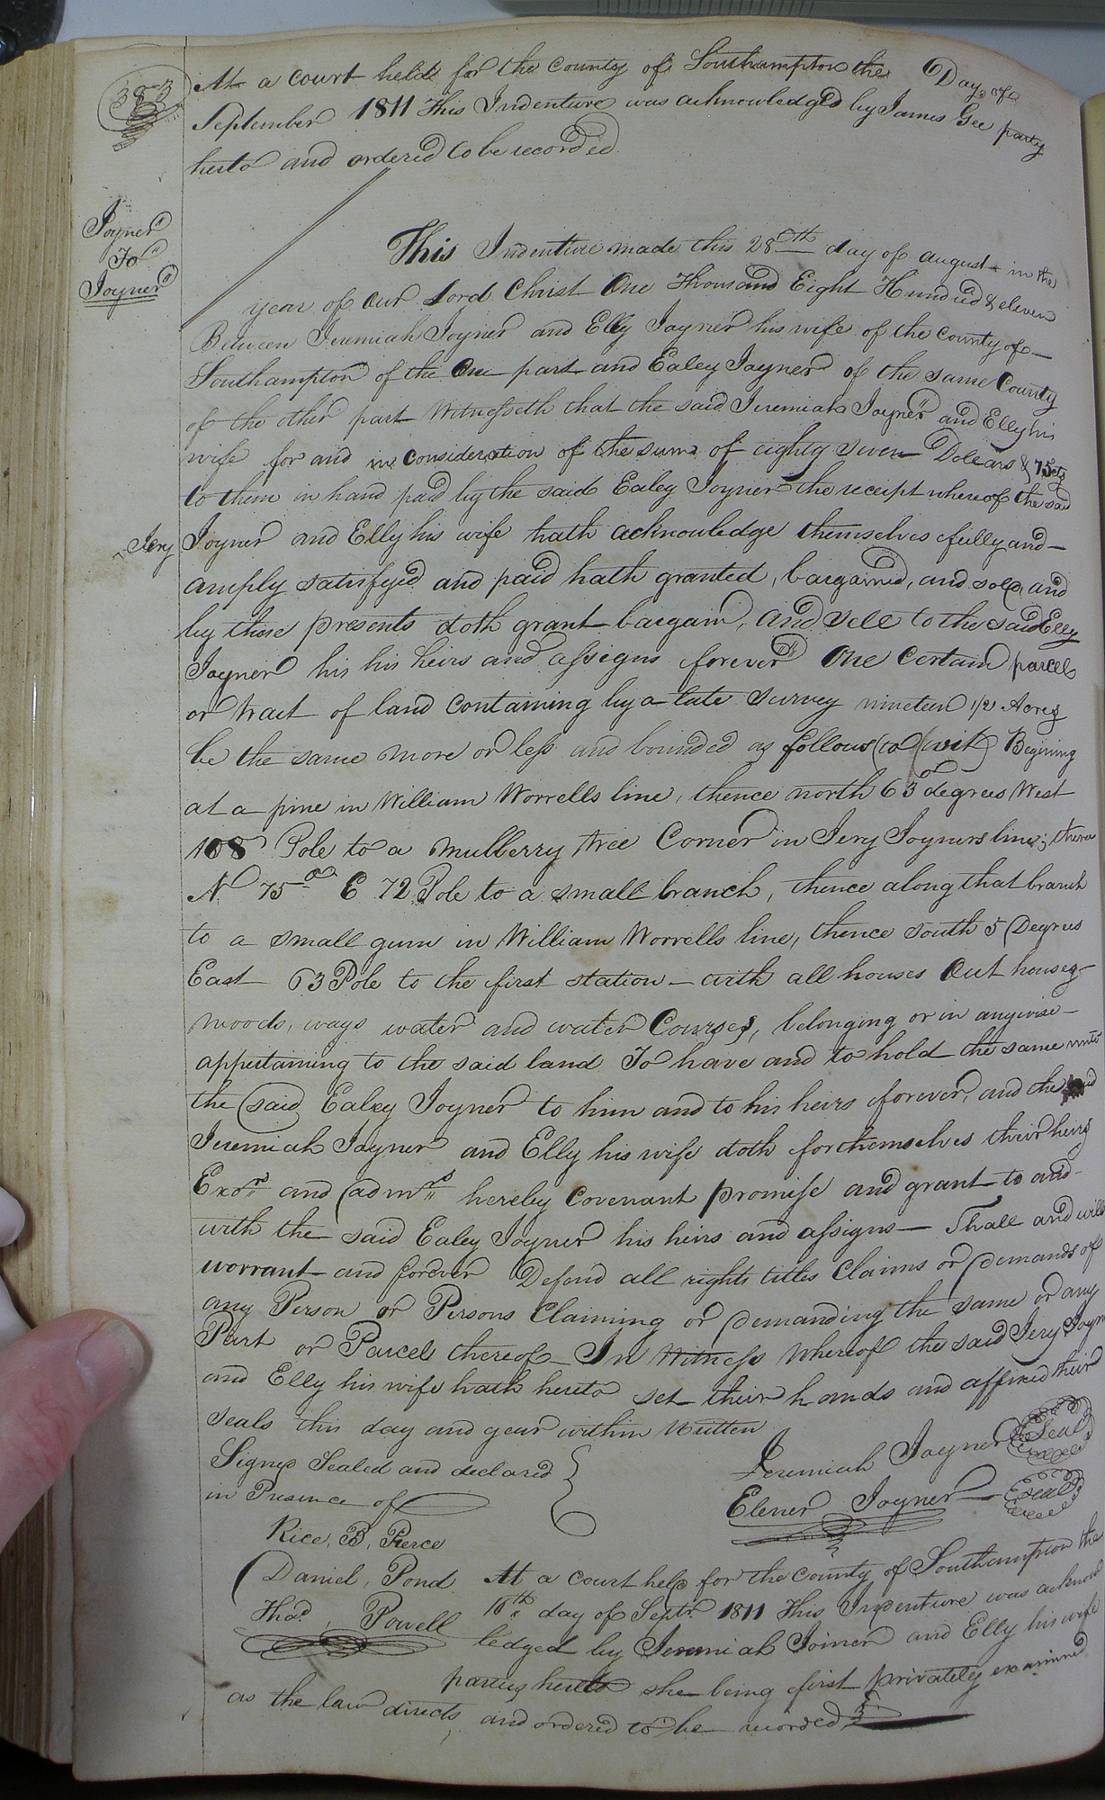 383
At a court held for the County of Southampton the Day of
September 1811 This Indenture was acknowledged by James Gee party
hereto and ordered to be recorded
Joyner
To
Joyner
This Indenture made this 28th day of august in the
year of our Lord Christ One Thousand Eight Hundred & eleven
Between Jeremiah Joyner and Elly Joyner his wife of the county of
Southampton of the One part and Ealey Joyner of the same County
of the other part Witnesseth that the said Jeremiah Joyner and Elly his
wife for and in consideration of the sum of eighty seven Dolears & 75cts
to them in hand paid by the said Ealey Joyner the receipt whereof the said
Jery Joyner and Elly his wife hath acknowledge themselves fully and
amply satisfyed and paid hath granted, bargained, and sold, and
by these presents doth grant bargain, and sell to the said Elly
Joyner his his heirs and assigns forever One certain parcel
or tract of land containing by a late survey nineteen 1/2 Acres
be the same more or less and bounded as follows (to (wit) Begining
at a pine in William Worrells line, thence north 63 degrees West
108 Pole to a mulberry tree Corner in Jery Joyners line; thence
N 75 E 72 Pole to a small branch, thence along that branch
to a small gum in William Worrells line, thence south 5 Degrees
East 63 Pole to the first station — with all houses Out houses
woods, ways water and water Courses, belonging or in anywise
appertaining to the said land To have and to hold the same unto
the said Ealey Joyner to him and to his heirs forever, and the said
Jeremiah Joyner and Elly his wife doth for themselves their heirs
Exors and admrs hereby covenant promise and grant to and
with the said Ealey Joyner his heirs and assigns — Shall and will
worrant and forever Defend all rights titles Claims or Demands of
any Person or Persons Claiming or Demanding the same or any
Part or Parcel thereof — In Witness Whereof the said Jery Joyner
and Elly his wife hath hereto set their hands and affixed their
seals this day and year within Written
Signed Sealed and declared
in Presence of
Jeremiah Joyner Seal
Elener Joyner Seal
Rice, B, Pierce
Daniel, Pond
Thos, Powell
At a court help for the County of Southampton the
16th day of Septr 1811 This Indenture was acknow
ledged by Jeremiah Joiner and Elly his wife
parties hereto she being first privately examined
as the law directs, and ordered to be recorded